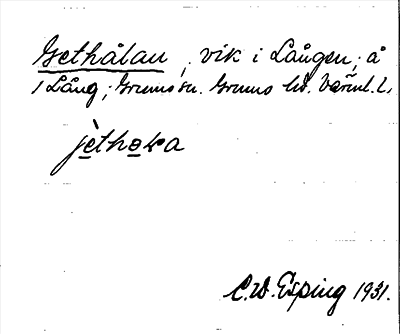 Gethålau, vik i Lången; å
1 Lång; Grums sn. Grums hd. Värml. l.
jèthola
C.W. Esping 1931.